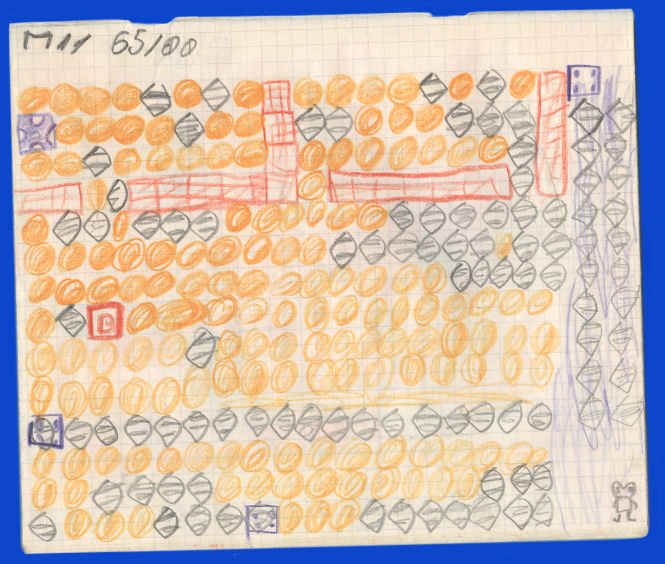 M11 65/00